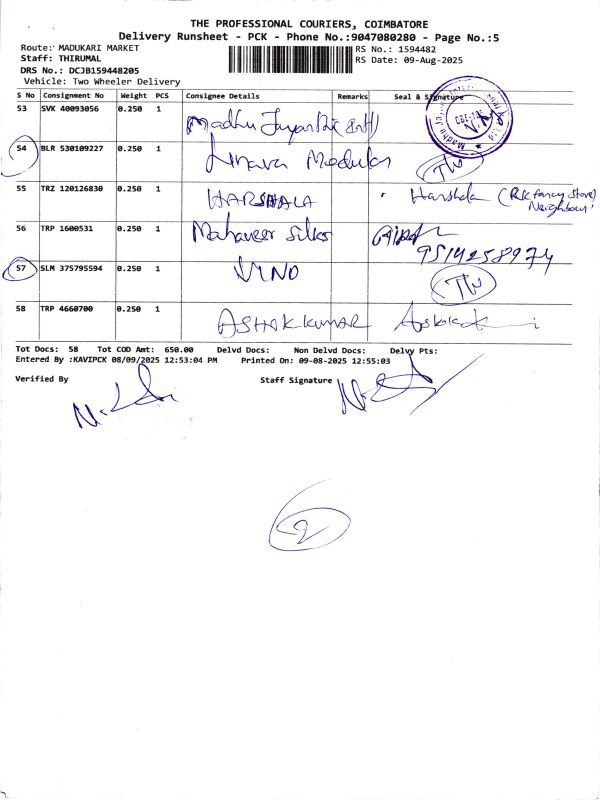 THE PROFESSIONAL COURIERS, COIMBATORE
Delivery Runsheet - PCK - Phone No.:9047080280 - Page No.:5
Route: MADUKARI MARKET
RS No.: 1594482
Staff: THIRUMAL
RS Date: 09-Aug-2025
DRS No.: DCJB159448205
Vehicle: Two Wheeler Delivery
S No Consignment No Weight PCS Consignee Details Remarks Seal & Signature
53 SVK 40093056 0.250 1 Madhu Jayanthi
54 BLR 530109227 0.250 1 Modular
55 TRZ 120126830 0.250 1 HARSHALA Harshala (RK fancy Store)
Neighbour
56 TRP 1600531 0.250 1 Mahaveer Silks
9514258974
57 SLM 375795594 0.250 1 VINO
58 TRP 4660700 0.250 1 ASHOK KUMAR
Tot Docs: 58 Tot COD Amt: 650.00 Delvd Docs: Non Delvd Docs: Delvy Pts:
Entered By :KAVIPCK 08/09/2025 12:53:04 PM Printed On: 09-08-2025 12:55:03
Verified By Staff Signature
2